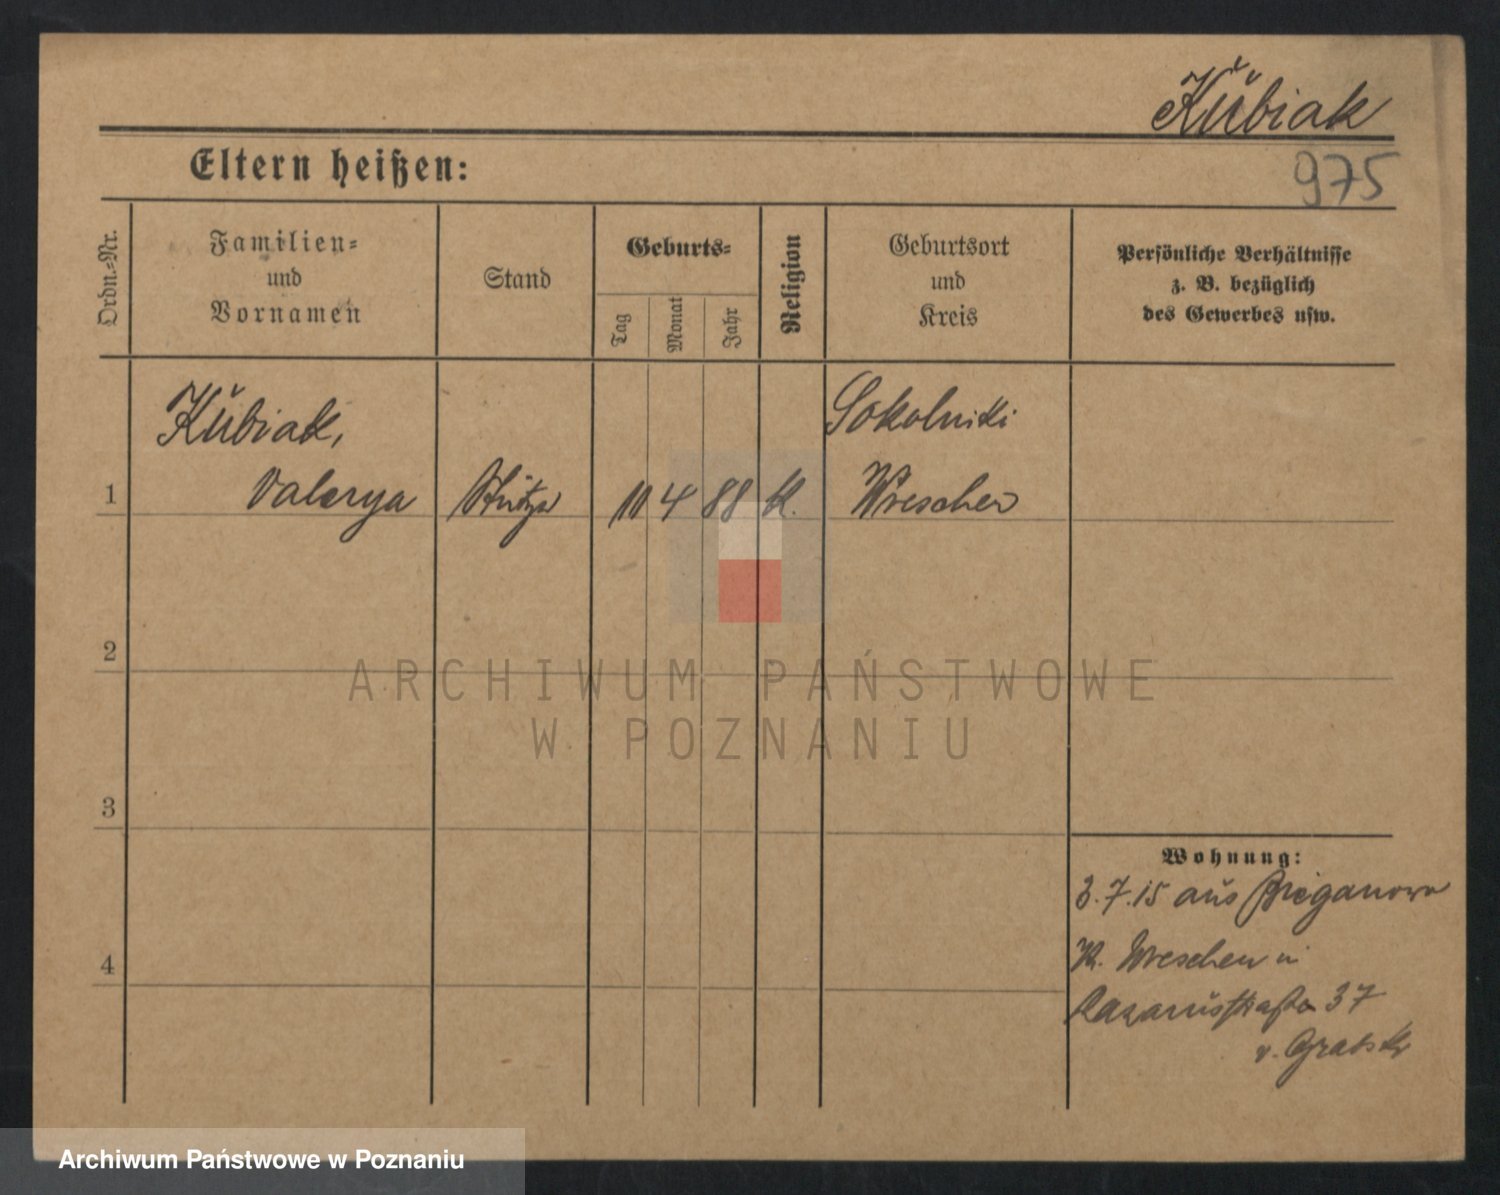 Kubiak
Eltern heißen:
975
Ordn.-Nr.
Familien-
und
Vornamen
Stand
Geburts-
Tag
Monat
Jahr
Religion
Geburtsort
und
Kreis
Persönliche Verhältnisse
z. B. bezüglich
des Gewerbes usw.
Kubiak,
Sokolniki
1
Valerya
Stütze
4
88
k.
Wreschen
2
ARCHIWUM PAŃSTWOWE
W POZNANIU
3
Wohnung:
3.7.15 aus
4
K. Wreschen in
Lazarusstraße 37
v.
Archiwum Państwowe w Poznaniu